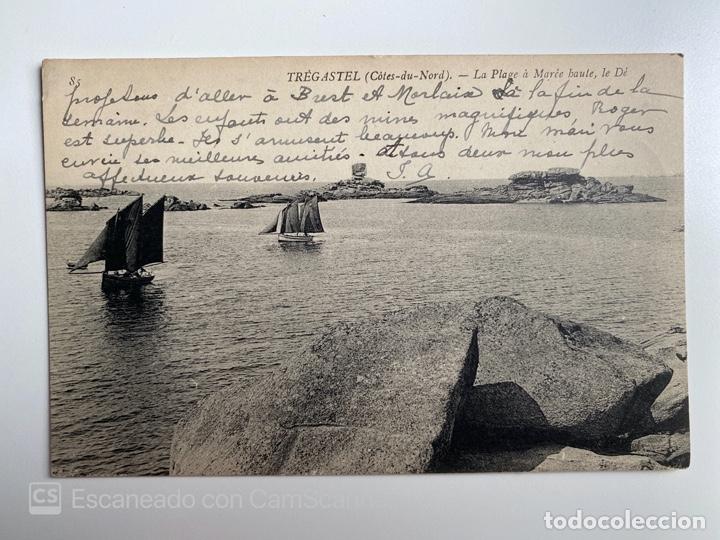 85 TRÉGASTEL (Côtes-du-Nord). — La Plage à Marée haute, le Dé
proposons d'aller à Brest et Morlaix à la fin de la
semaine. Les enfants ont des mines magnifiques, Roger
est superbe - Ils s'amusent beaucoup. Mon mari vous
envoie ses meilleures amitiés - et tous deux mon plus
affectueux souvenirs.
CS Escaneado con CamScanner
todocoleccion.net